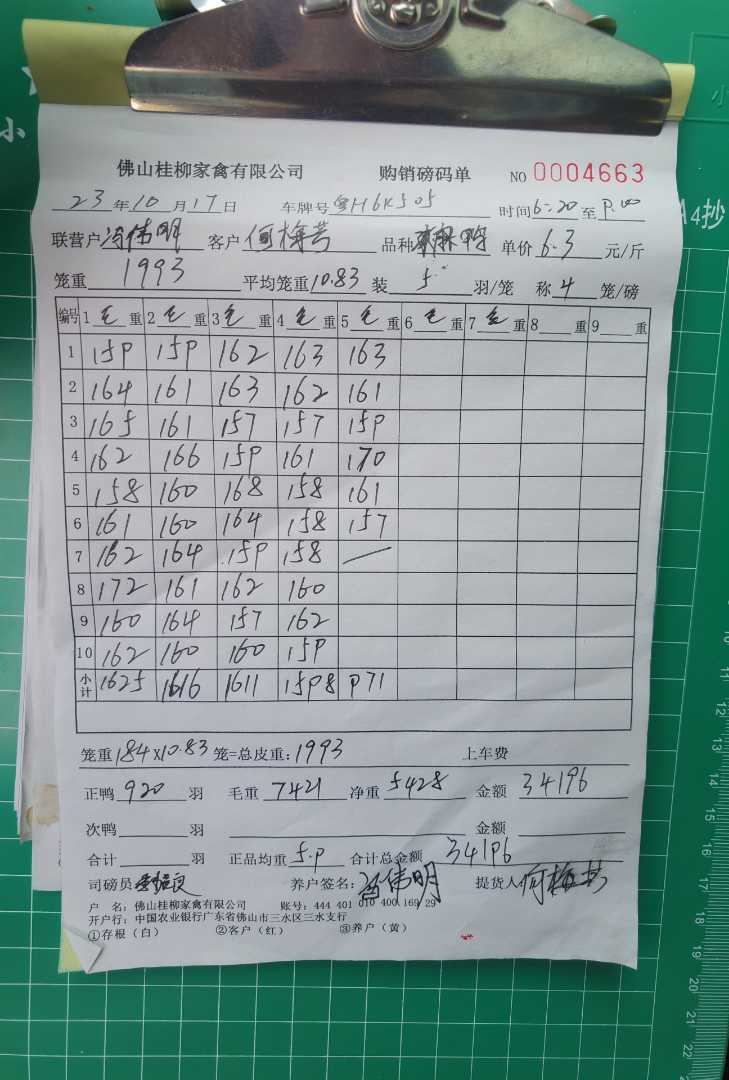 佛山桂柳家禽有限公司 购销磅码单 NO 0004663
23年10月17日 车牌号粤H6K505 时间6:20至9:00
联营户冯伟明 客户何梅芸 品种麻鸭 单价6.3元/斤
笼重1993 平均笼重10.83 装5羽/笼 称4笼/磅
编号 1毛重 2毛重 3毛重 4毛重 5毛重 6毛重 7毛重 8重 9重
1 159 159 162 163 163
2 164 161 163 162 161
3 165 161 157 157 159
4 162 166 159 161 170
5 158 160 168 158 161
6 161 160 164 158 157
7 162 164 159 158 —
8 172 161 162 160
9 160 164 157 162
10 162 160 160 159
小计 1625 1616 1611 1598 971
笼重184×10.83笼=总皮重:1993 上车费
正鸭920羽 毛重7421 净重5428 金额34196
次鸭 羽 金额
合计 羽 正品均重5.9 合计总金额34196
司磅员 养户签名:冯伟明 提货人何梅芸
户 名: 佛山桂柳家禽有限公司 账号: 444 401 010 400 169 29
开户行: 中国农业银行广东省佛山市三水区三水支行
①存根(白) ②客户(红) ③养户(黄)
小
小
A4抄
10
11
12
13
14
15
16
17
18
19
20
21
22